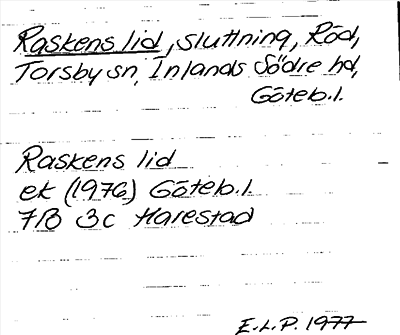 Raskens lid, sluttning, Röd,
Torsby sn, Inlands Södre hd,
Göteb.l.
Raskens lid
ek (1976) Göteb.l.
7B 3c Harestad
E.L.P. 1977